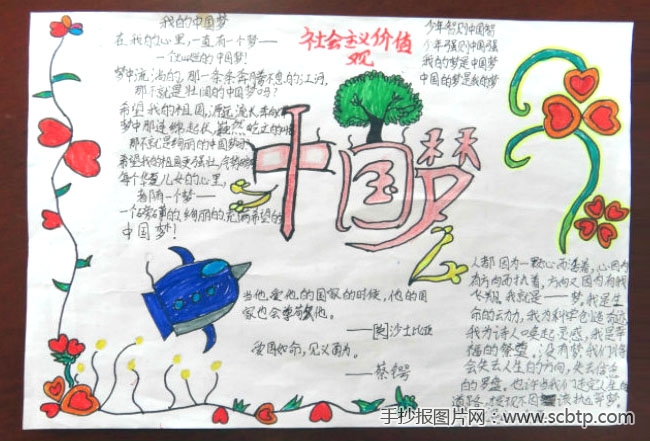 我的中国梦
在我的心里,一直有一个梦——
一个的中国梦!
梦中流淌的,那一条条奔腾不息的江河,
那不就是壮阔的中国梦吗?
希望我的祖国,源远流长
梦中那连绵起伏,巍然屹立的
那不就是绚丽的中国梦
希望我的祖国更强壮
每个华夏儿女的心里,
都有一个梦——
一个的绚丽的充满希望的
中国梦!
社会主义价值
观
少年智则中国智
少年强则中国强
我的梦是中国梦
中国的梦是我的梦
中国梦
当他爱他的国家的时候,他的国
家也会尊荣他。
——[英]沙士比亚
爱国如命,见义勇为。
——蔡锷
人都因为一颗心而活着,心因为
有方向而执着,方向又因为有我
我就是——梦,我是生
命的动力,我为科学创造奇迹
我为诗人唤起灵感,我是幸
福的殿堂。没有梦我们将
会失去人生的方向,失去信念
的罗盘,也许当我们走在人生的
道路
手抄报图片网:www.scbtp.com